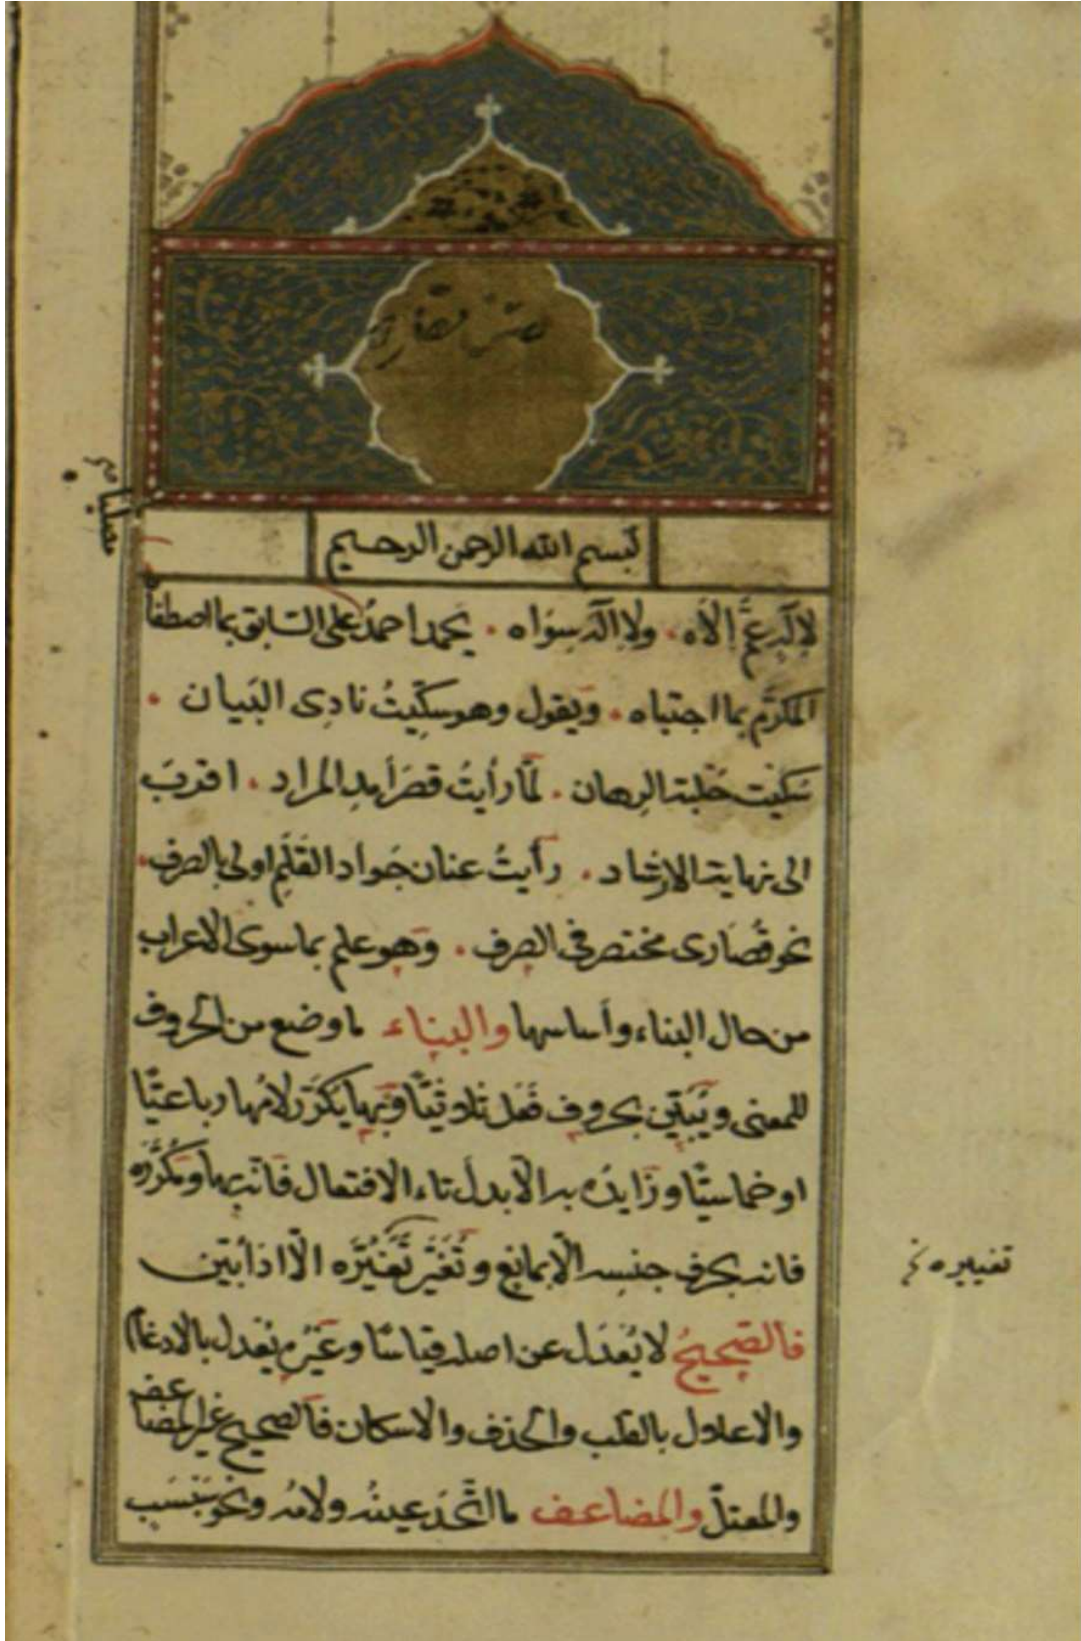 بسم الله الرحمن الرحيم
لآلہ عمَّ إلاه ولا اله سواه يحمد احمدُ على السابق بما اصطفاه
المكرَّم بما اجتباه ويقول وهو سكّيتُ نادى البَيان
سُكَيت حَلبة الرهان لمّا رأيتُ قصَر أمد المراد اقربَ
الى نهاية الارشاد رأيتُ عنان جَواد القَلَم اولى بالصرف
نحو قُصَارى مختصر فى الصرف وهو علم بما سوى الاعراب
من حال البناء وأساسها والبناء ما وضع من الحروف
للمعنى ويُبَيَّن بحروف فَعَل ثلاثيّا وبها يُكَرَّر لامُها رباعيّا
او خماسيّا وزايدُه به الّا بدل تاء الافتعال فانّه بها ومكرَّره
فانه بحرف جنسه الّا بمانع وتُغَيَّر تَغَيُّرَه الّا اذا أبَين
فالصحيحُ لا يُعْدَل عن اصله قياسًا وغَيرُه يُعْدل بالادغام
والاعلال بالقلب والحذف والاسكان فالصحيح غير المضاعف
والمعتلّ والمضاعف ما اتَّحَد عينُه ولامُه ونحو
تغييره خ